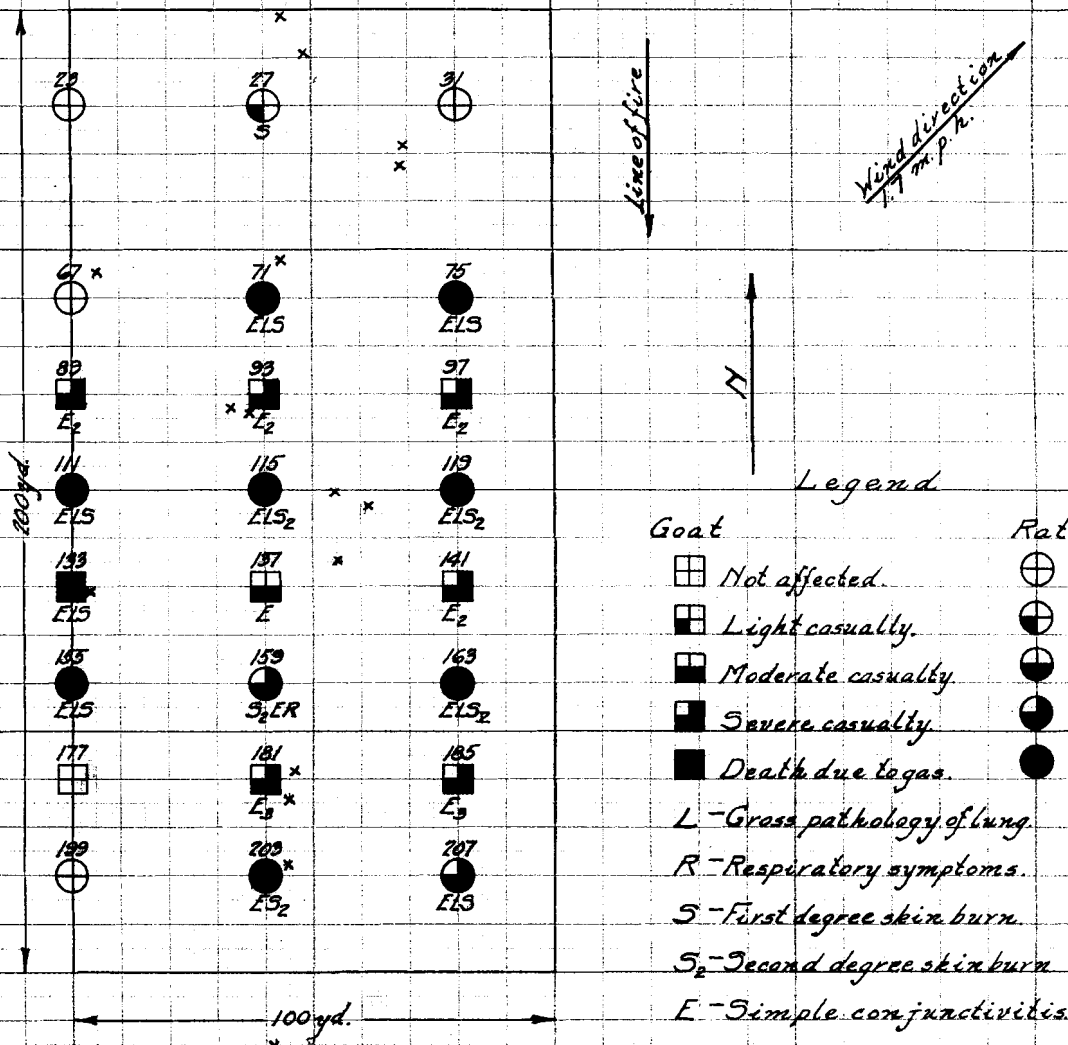 23 27 31
S
Line of fire
Wind direction
1.7 m.p.h.
67 71 75
ELS ELS
N
89 93 97
E2 E2 E2
200 yd.
111 115 119
ELS ELS2 ELS2
133 137 141
ELS E E2
155 159 163
ELS S2ER
177 181 185
E3 E3
199 203 207
ES2 ELS
100 yd.
Legend
Goat Rat
Not affected.
Light casualty.
Moderate casualty.
Severe casualty.
Death due to gas.
L - Gross pathology of lung.
R - Respiratory symptoms.
S - First degree skin burn.
S2 - Second degree skin burn
E - Simple conjunctivitis.